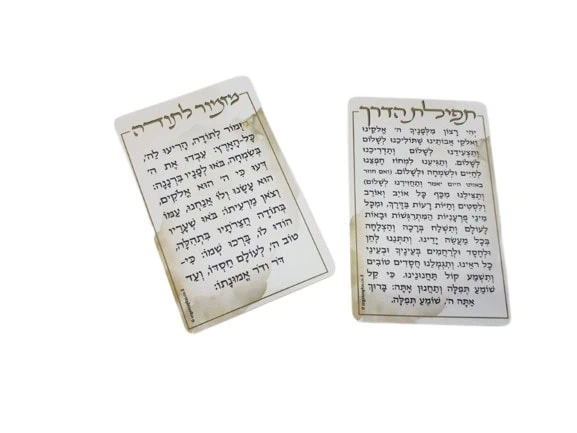 מזמור לתודה
מִזְמוֹר לְתוֹדָה, הָרִיעוּ לַה',
כָּל-הָאָרֶץ: עִבְדוּ אֶת ה'
בְּשִׂמְחָה, בֹּאוּ לְפָנָיו בִּרְנָנָה:
דְּעוּ כִּי ה' הוּא אֱלֹקִים,
הוּא עָשָׂנוּ וְלוֹ אֲנַחְנוּ, עַמּוֹ
וְצֹאן מַרְעִיתוֹ: בֹּאוּ שְׁעָרָיו
בְּתוֹדָה חֲצֵרֹתָיו בִּתְהִלָּה,
הוֹדוּ לוֹ, בָּרְכוּ שְׁמוֹ: כִּי-
טוֹב ה', לְעוֹלָם חַסְדּוֹ, וְעַד
דֹּר וָדֹר אֱמוּנָתוֹ:
תפילת הדרך
יְהִי רָצוֹן מִלְּפָנֶיךָ ה' אֱלֹקֵינוּ
וֵאלֹקֵי אֲבוֹתֵינוּ שֶׁתּוֹלִיכֵנוּ לְשָׁלוֹם
וְתַצְעִידֵנוּ לְשָׁלוֹם וְתַדְרִיכֵנוּ
לְשָׁלוֹם. וְתַגִּיעֵנוּ לִמְחוֹז חֶפְצֵנוּ
לְחַיִּים וּלְשִׂמְחָה וּלְשָׁלוֹם. (ואם חוזר
באותו היום יאמר וְתַחֲזִירֵנוּ לְשָׁלוֹם)
וְתַצִּילֵנוּ מִכַּף כָּל אוֹיֵב וְאוֹרֵב
וְלִסְטִים וְחַיּוֹת רָעוֹת בַּדֶּרֶךְ, וּמִכָּל
מִינֵי פֻּרְעָנֻיּוֹת הַמִּתְרַגְּשׁוֹת וּבָאוֹת
לָעוֹלָם וְתִשְׁלַח בְּרָכָה וְהַצְלָחָה
בְּכָל מַעֲשֵׂה יָדֵינוּ. וְתִתְּנֵנוּ לְחֵן
וּלְחֶסֶד וּלְרַחֲמִים בְּעֵינֶיךָ וּבְעֵינֵי
כָל רוֹאֵינוּ. וְתִגְמְלֵנוּ חֲסָדִים טוֹבִים
וְתִשְׁמַע קוֹל תַּחֲנוּנֵינוּ. כִּי קֵל
שׁוֹמֵעַ תְּפִלָּה וְתַחֲנוּן אָתָּה: בָּרוּךְ
אַתָּה ה', שׁוֹמֵעַ תְּפִלָּה.